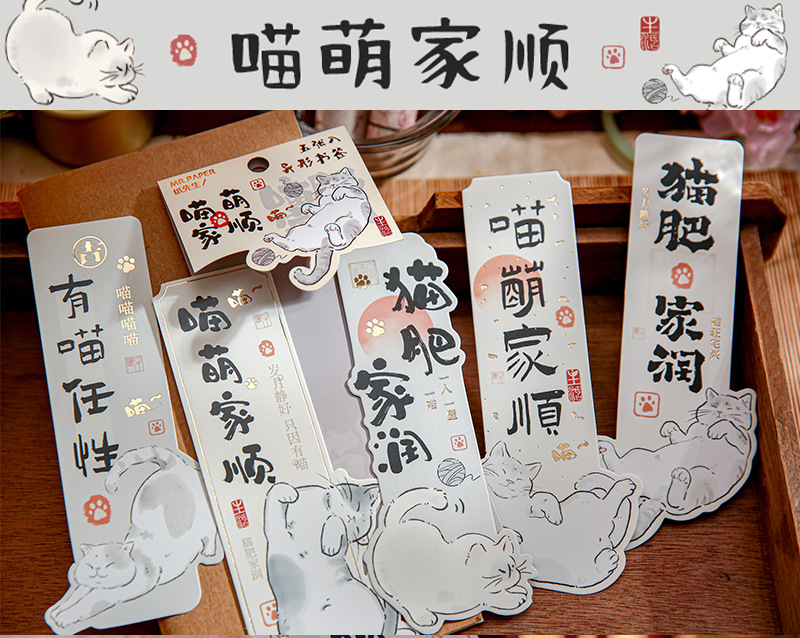 喵萌家顺
MR.PAPER
纸先生/
五张入
异形书签
喵萌
家顺
喵
有喵任性
喵喵喵喵
喵~
喵萌家顺
喵~
岁月静好 只因有喵
猫肥家润
猫肥
家润
一人一屋
一喵
喵萌家順
喵~
猫肥
家润
岁月静好
喵旺宅兴